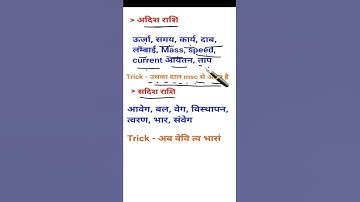 > अदिश राशि
ऊर्जा, समय, कार्य, दाब,
लम्बाई, Mass, speed,
current आयतन, ताप
Trick - उसका दाल msc से है
> सदिश राशि
आवेग, बल, वेग, विस्थापन,
त्वरण, भार, संवेग
Trick - अब वेवि त्व भासं